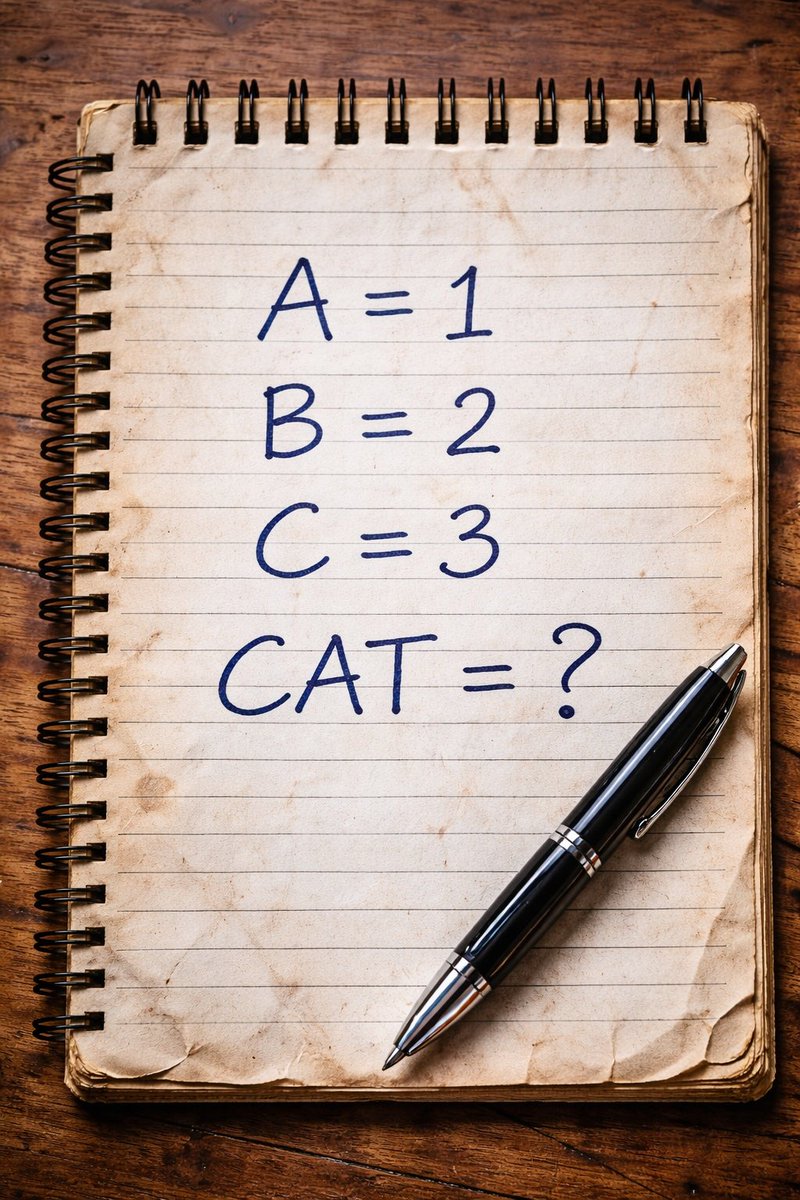 A = 1
B = 2
C = 3
CAT = ?